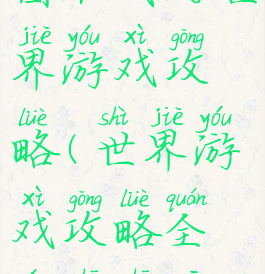 jiè yóu xì gōng
界游戏攻
lüè shì jiè yóu
略(世界游
xì gōng lüè quán
戏攻略全